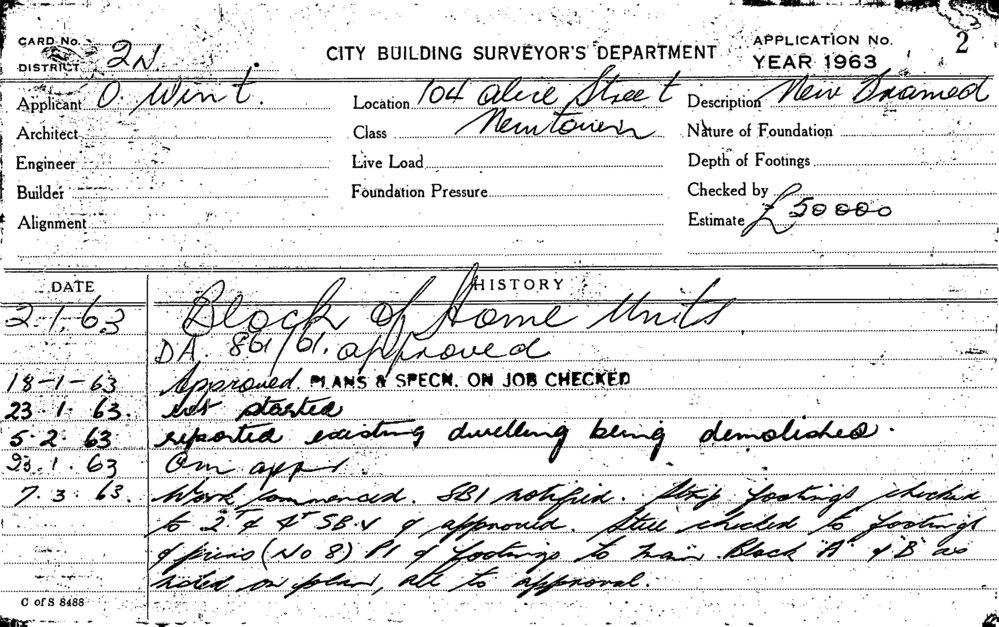 CARD No.
DISTRICT 2N.
CITY BUILDING SURVEYOR'S DEPARTMENT
APPLICATION No. 2
YEAR 1963
Applicant O. Wint.
Location 104 Alice Street
Description New Framed
Architect
Class Newtown
Nature of Foundation
Engineer
Live Load
Depth of Footings
Builder
Foundation Pressure
Checked by
Alignment
Estimate £50000
DATE
HISTORY
2.1.63 Block of Home Units
DA 861/61. approved
18-1-63 Approved. PLANS & SPECN. ON JOB CHECKED
23.1.63. not started
5.2.63 reported existing dwelling being demolished.
.1.63 Om appr.
7.3.63. Work commenced. SB1 notified. Strip footings checked
to 2 & 4 SB.4 & approved. Steel checked to footings
of piers (No 8) P1 & footings to main Block "A" & "B" as
noted on plan, all to approval.
C of S 8488